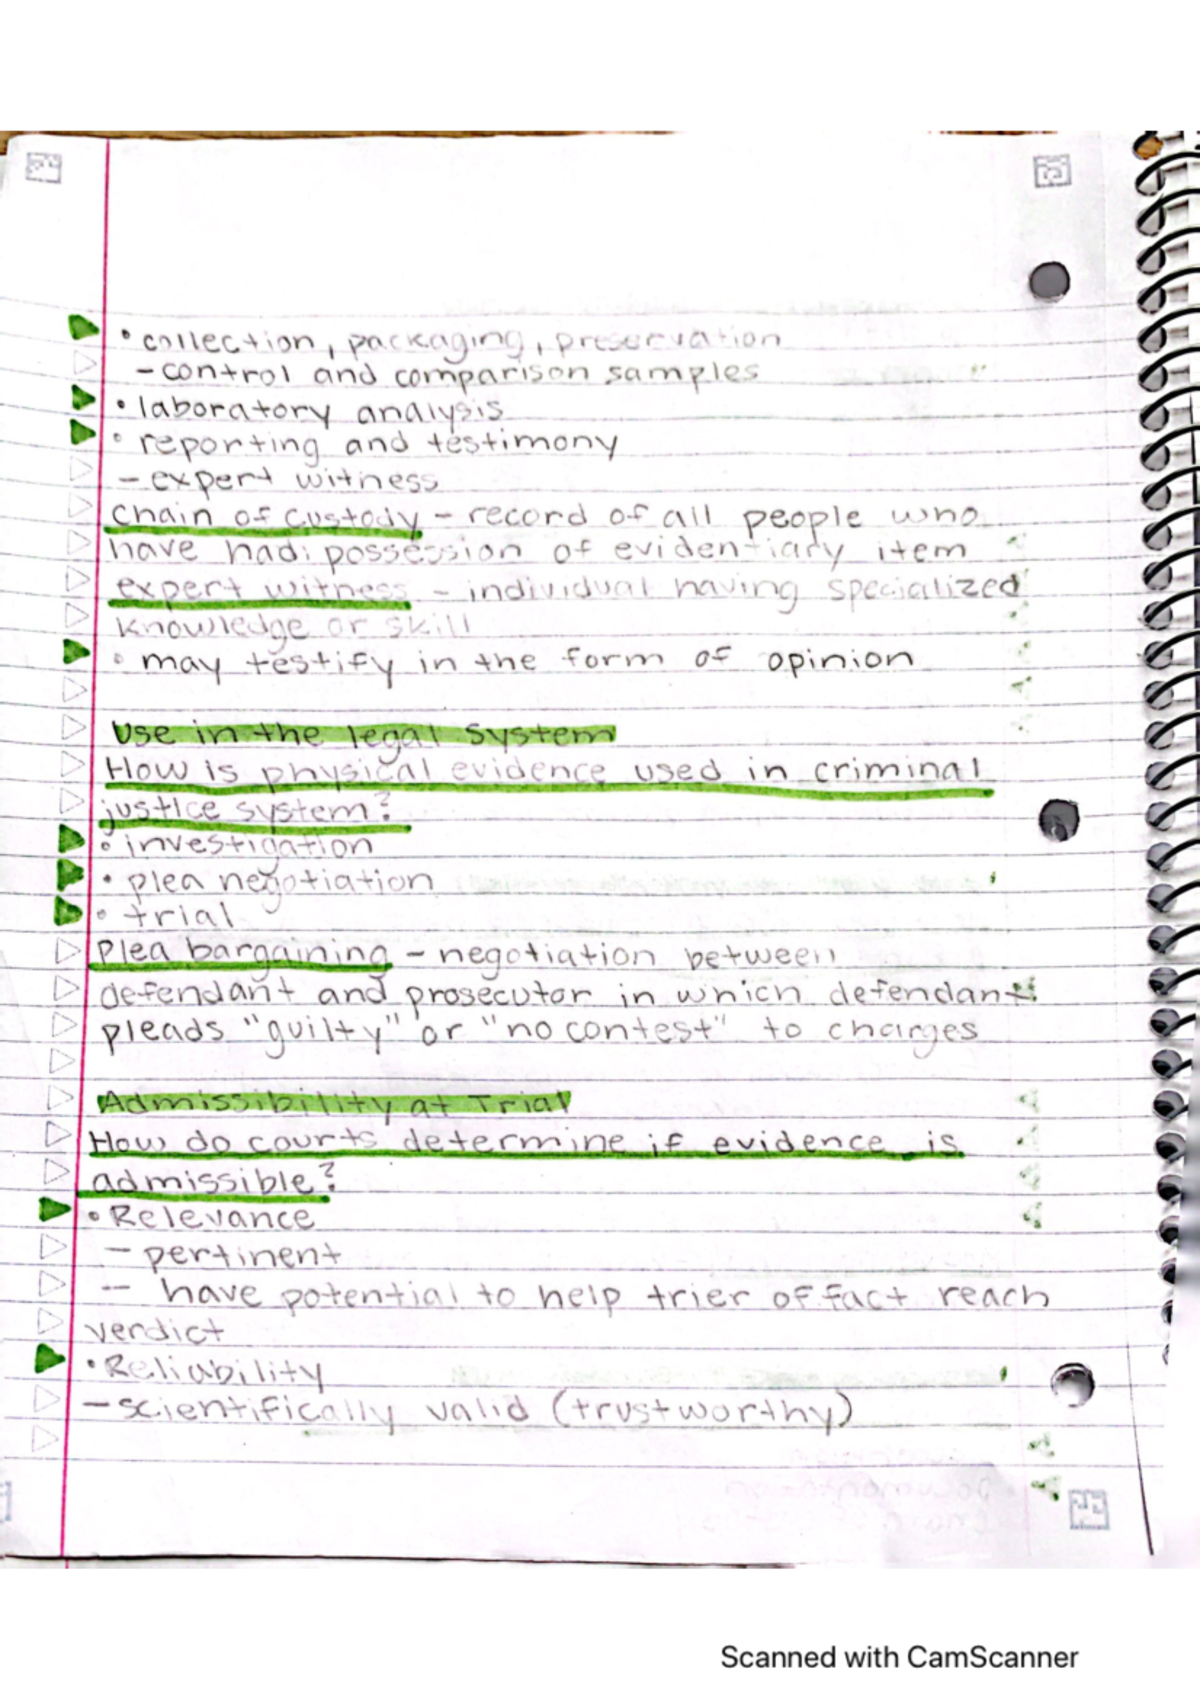 • collection, packaging, preservation
- control and comparison samples
• laboratory analysis
• reporting and testimony
- expert witness
Chain of custody - record of all people who
have had possession of evidentiary item
expert witness - individual having specialized
knowledge or skill
• may testify in the form of opinion
Use in the legal System
How is physical evidence used in criminal
justice system?
• investigation
• plea negotiation
• trial
Plea bargaining - negotiation between
defendant and prosecutor in which defendant
pleads "guilty" or "no contest" to charges
Admissibility at Trial
How do courts determine if evidence is
admissible?
• Relevance
- pertinent
- have potential to help trier of fact reach
verdict
• Reliability
- scientifically valid (trustworthy)
Scanned with CamScanner